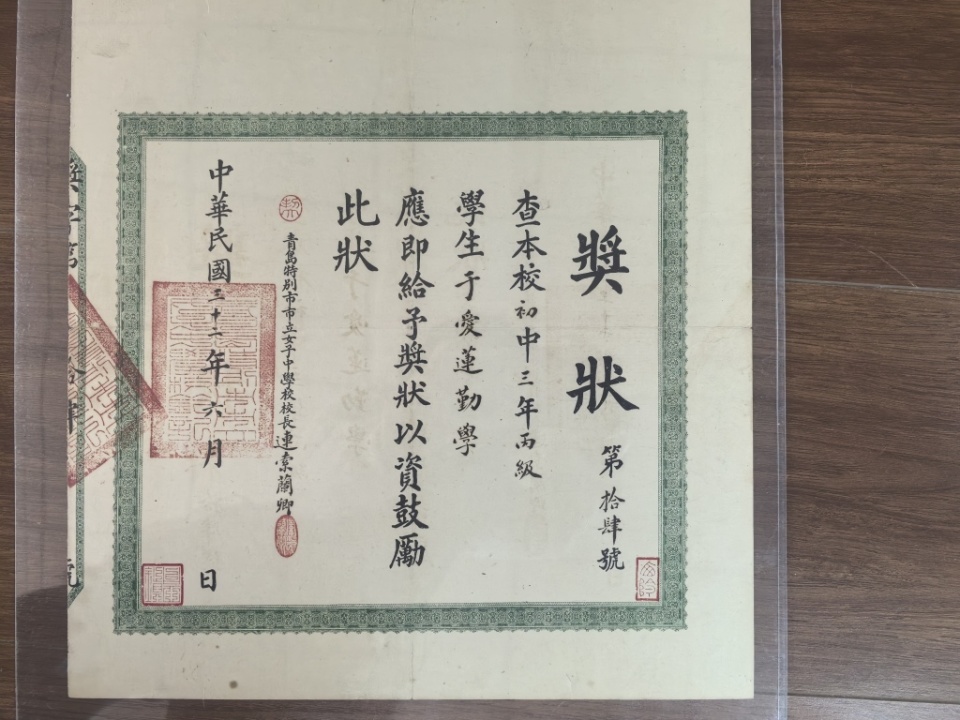 獎狀
第拾肆號
查本校初中三年丙級
學生于愛蓮勤學
應即給予獎狀以資鼓勵
此狀
青島特別市市立女子中學校校長連索蘭卿
中華民國三十二年六月
日